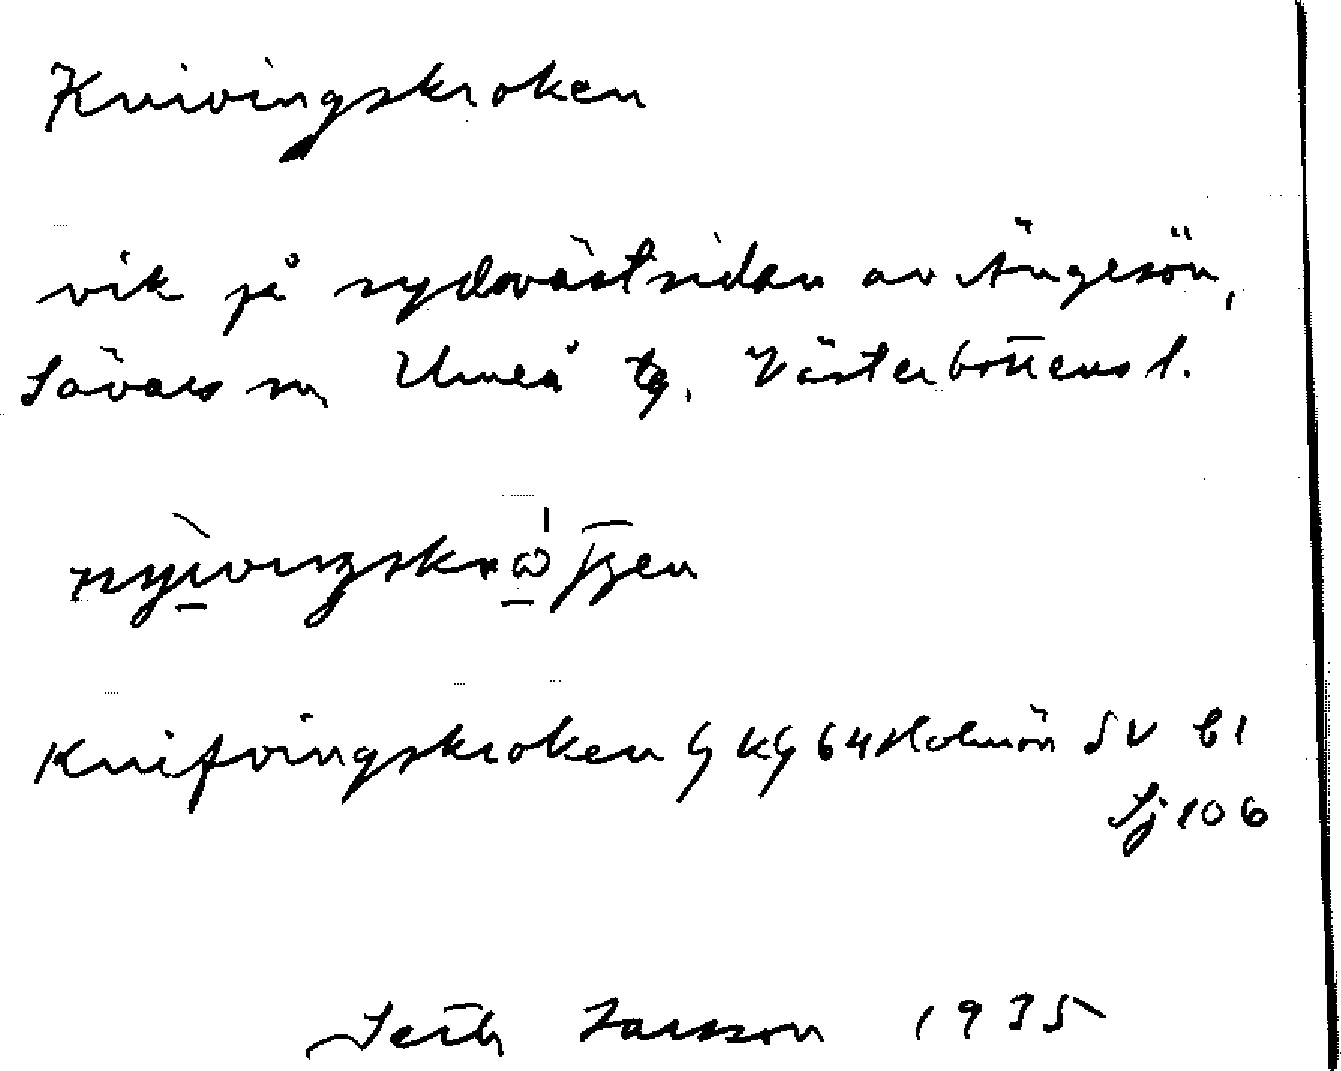 Knivingskroken
vik på sydvästsidan av Ängesön,
Sävars sn Umeå tg. Västerbottens l.
Knifvingskroken G kG 64 Holmön SV bl
Sj 106
Seth Larsson 1935